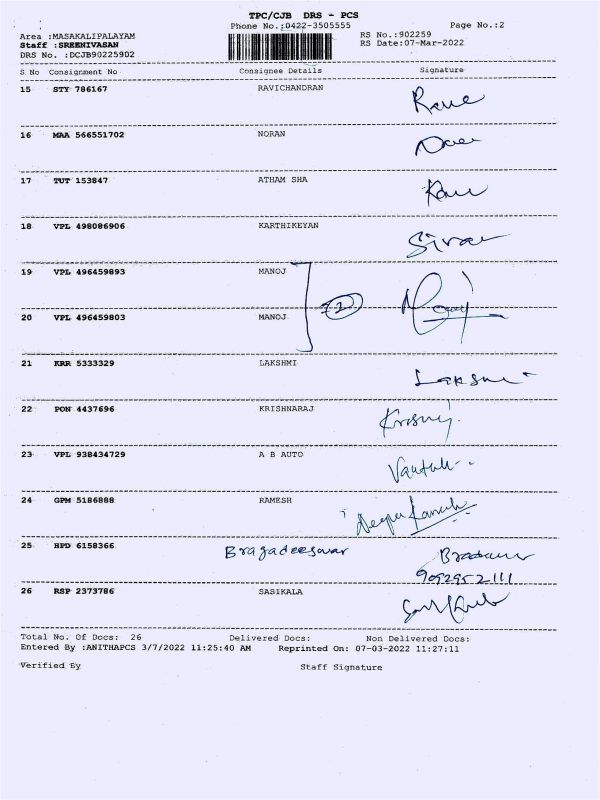 TPC/CJB DRS - PCS
Phone No.:0422-3505555 Page No.:2
Area :MASAKALIPALAYAM RS No.:902259
Staff :SREENIVASAN RS Date:07-Mar-2022
DRS No. :DCJB90225902
S No Consignment No Consignee Details Signature
15 STY 786167 RAVICHANDRAN
16 MAA 566551702 NORAN
17 TUT 153847 ATHAM SHA
18 VPL 498086906 KARTHIKEYAN
19 VPL 496459893 MANOJ
20 VPL 496459803 MANOJ
21 KRR 5333329 LAKSHMI
22 PON 4437696 KRISHNARAJ
23 VPL 938434729 A B AUTO
24 GPM 5186888 RAMESH
25 HPD 6158366 Bragadeeswar
9092952111
26 RSP 2373786 SASIKALA
Total No. Of Docs: 26 Delivered Docs: Non Delivered Docs:
Entered By :ANITHAPCS 3/7/2022 11:25:40 AM Reprinted On: 07-03-2022 11:27:11
Verified By Staff Signature